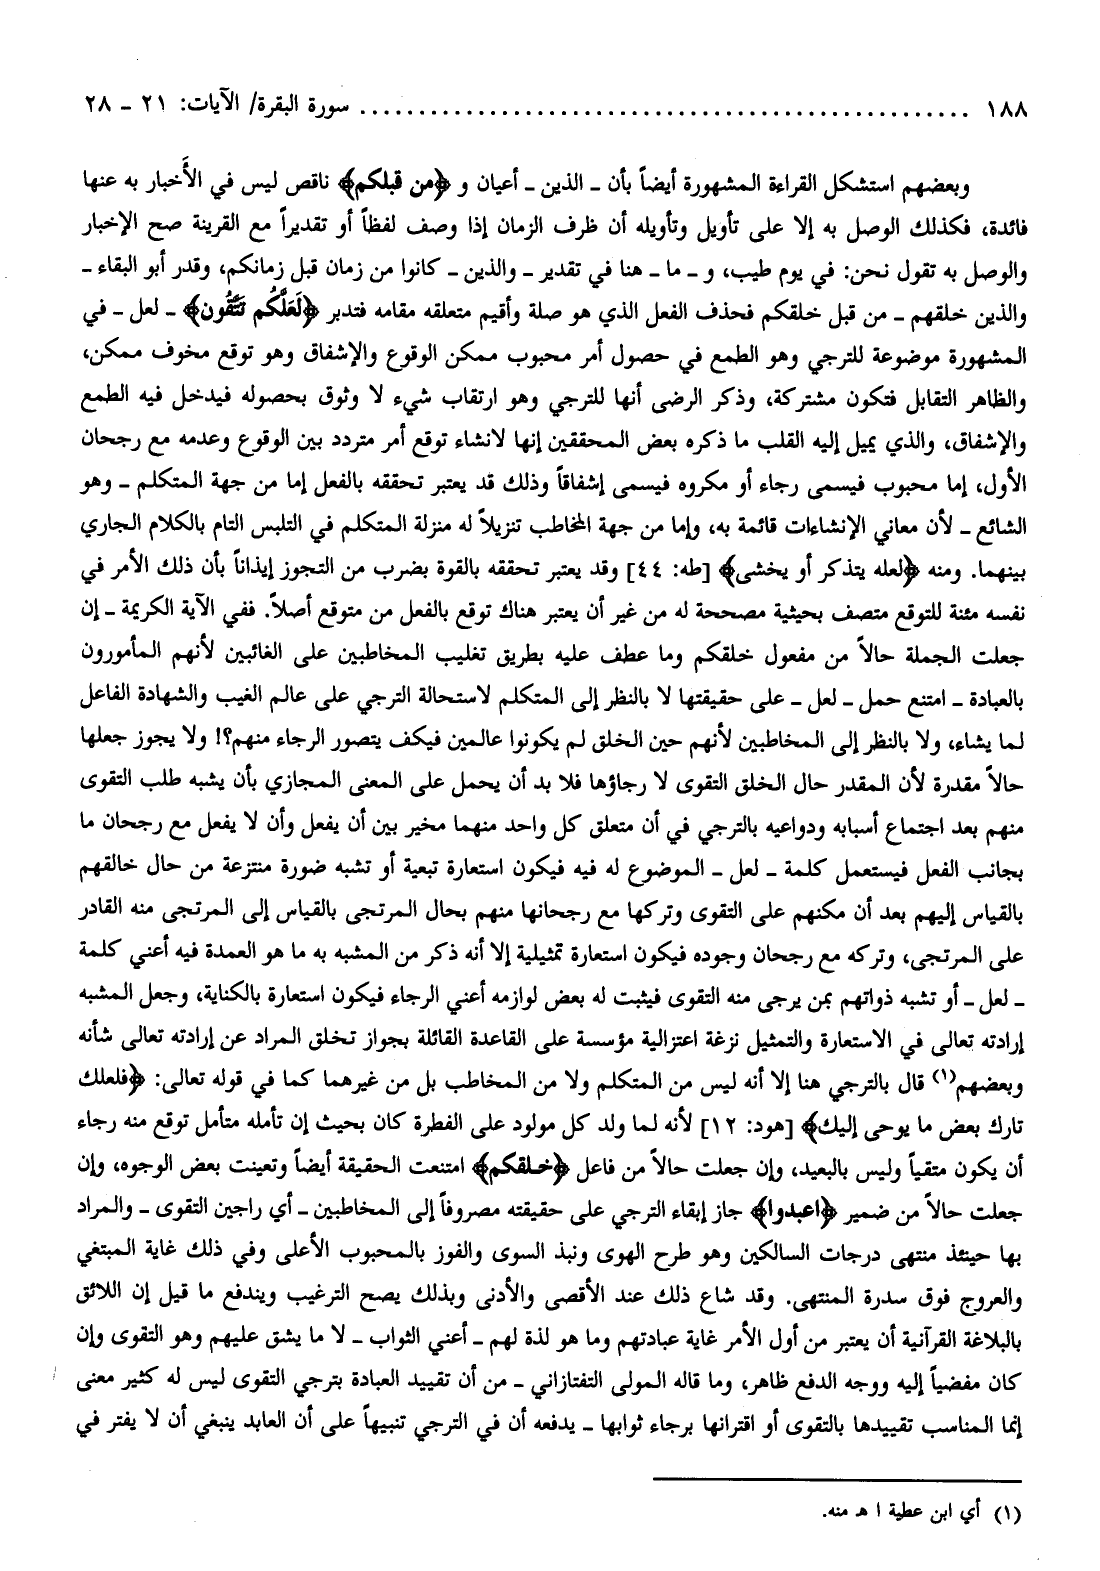 ١٨٨ ................................................ سورة البقرة/ الآيات: ٢١ ـ ٢٨
وبعضهم استشكل القراءة المشهورة أيضاً بأن ـ الذين ـ أعيان و ﴿من قبلكم﴾ ناقص ليس في الأَخبار به عنها
فائدة، فكذلك الوصل به إلا على تأويل وتأويله أن ظرف الزمان إذا وصف لفظاً أو تقديراً مع القرينة صح الإخبار
والوصل به تقول نحن: في يوم طيب، و ـ ما ـ هنا في تقدير ـ والذين ـ كانوا من زمان قبل زمانكم، وقدر أبو البقاء ـ
والذين خلقهم ـ من قبل خلقكم فحذف الفعل الذي هو صلة وأقيم متعلقه مقامه فتدبر ﴿لَعَلَّكُم تَتَّقُون﴾ ـ لعل ـ في
المشهورة موضوعة للترجي وهو الطمع في حصول أمر محبوب ممكن الوقوع والإشفاق وهو توقع مخوف ممكن،
والظاهر التقابل فتكون مشتركة، وذكر الرضى أنها للترجي وهو ارتقاب شيء لا وثوق بحصوله فيدخل فيه الطمع
والإشفاق، والذي يميل إليه القلب ما ذكره بعض المحققين إنها لانشاء توقع أمر متردد بين الوقوع وعدمه مع رجحان
الأول، إما محبوب فيسمى رجاء أو مكروه فيسمى إشفاقاً وذلك قد يعتبر تحققه بالفعل إما من جهة المتكلم ـ وهو
الشائع ـ لأن معاني الإنشاءات قائمة به، وإما من جهة المخاطب تنزيلاً له منزلة المتكلم في التلبس التام بالكلام الجاري
بينهما. ومنه ﴿لعله يتذكر أو يخشى﴾ [طه: ٤٤] وقد يعتبر تحققه بالقوة بضرب من التجوز إيذاناً بأن ذلك الأمر في
نفسه مئنة للتوقع متصف بحيثية مصححة له من غير أن يعتبر هناك توقع بالفعل من متوقع أصلاً. ففي الآية الكريمة ـ إن
جعلت الجملة حالاً من مفعول خلقكم وما عطف عليه بطريق تغليب المخاطبين على الغائبين لأنهم المأمورون
بالعبادة ـ امتنع حمل ـ لعل ـ على حقيقتها لا بالنظر إلى المتكلم لاستحالة الترجي على عالم الغيب والشهادة الفاعل
لما يشاء، ولا بالنظر إلى المخاطبين لأنهم حين الخلق لم يكونوا عالمين فيكف يتصور الرجاء منهم؟! ولا يجوز جعلها
حالاً مقدرة لأن المقدر حال الخلق التقوى لا رجاؤها فلا بد أن يحمل على المعنى المجازي بأن يشبه طلب التقوى
منهم بعد اجتماع أسبابه ودواعيه بالترجي في أن متعلق كل واحد منهما مخير بين أن يفعل وأن لا يفعل مع رجحان ما
بجانب الفعل فيستعمل كلمة ـ لعل ـ الموضوع له فيه فيكون استعارة تبعية أو تشبه ضورة منتزعة من حال خالقهم
بالقياس إليهم بعد أن مكنهم على التقوى وتركها مع رجحانها منهم بحال المرتجى بالقياس إلى المرتجى منه القادر
على المرتجى، وتركه مع رجحان وجوده فيكون استعارة تمثيلية إلا أنه ذكر من المشبه به ما هو العمدة فيه أعني كلمة
ـ لعل ـ أو تشبه ذواتهم بمن يرجى منه التقوى فيثبت له بعض لوازمه أعني الرجاء فيكون استعارة بالكناية، وجعل المشبه
إرادته تعالى في الاستعارة والتمثيل نزغة اعتزالية مؤسسة على القاعدة القائلة بجواز تخلق المراد عن إرادته تعالى شأنه
وبعضهم(١) قال بالترجي هنا إلا أنه ليس من المتكلم ولا من المخاطب بل من غيرهما كما في قوله تعالى: ﴿فلعلك
تارك بعض ما يوحى إليك﴾ [هود: ١٢] لأنه لما ولد كل مولود على الفطرة كان بحيث إن تأمله متأمل توقع منه رجاء
أن يكون متقياً وليس بالبعيد، وإن جعلت حالاً من فاعل ﴿خلقكم﴾ امتنعت الحقيقة أيضاً وتعينت بعض الوجوه، وإن
جعلت حالاً من ضمير ﴿اعبدوا﴾ جاز إبقاء الترجي على حقيقته مصروفاً إلى المخاطبين ـ أي راجين التقوى ـ والمراد
بها حينئذ منتهى درجات السالكين وهو طرح الهوى ونبذ السوى والفوز بالمحبوب الأعلى وفي ذلك غاية المبتغي
والعروج فوق سدرة المنتهى. وقد شاع ذلك عند الأقصى والأدنى وبذلك يصح الترغيب ويندفع ما قيل إن اللائق
بالبلاغة القرآنية أن يعتبر من أول الأمر غاية عبادتهم وما هو لذة لهم ـ أعني الثواب ـ لا ما يشق عليهم وهو التقوى وإن
كان مفضياً إليه ووجه الدفع ظاهر، وما قاله المولى التفتازاني ـ من أن تقييد العبادة بترجي التقوى ليس له كثير معنى
إنما المناسب تقييدها بالتقوى أو اقترانها برجاء ثوابها ـ يدفعه أن في الترجي تنبيهاً على أن العابد ينبغي أن لا يفتر في
(١) أي ابن عطية ا هـ منه.